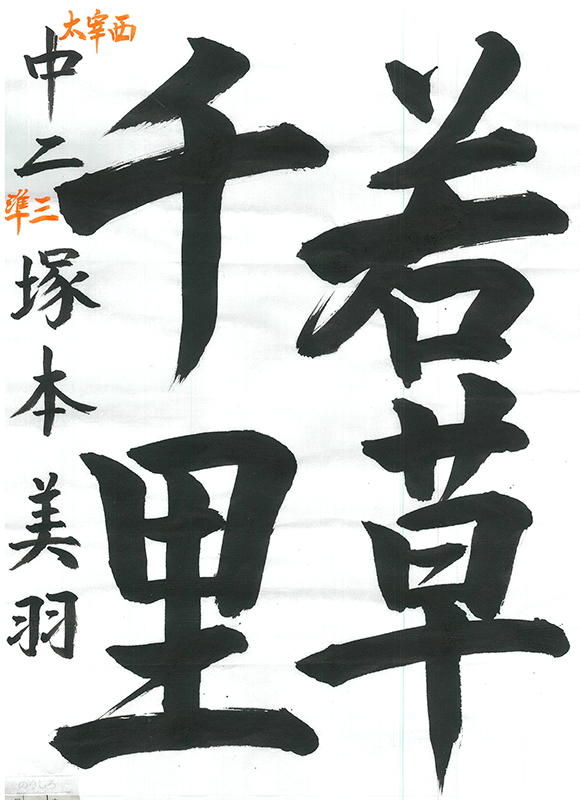 若草
千里
太宰西
中二
準三
塚本美羽
のりしろ